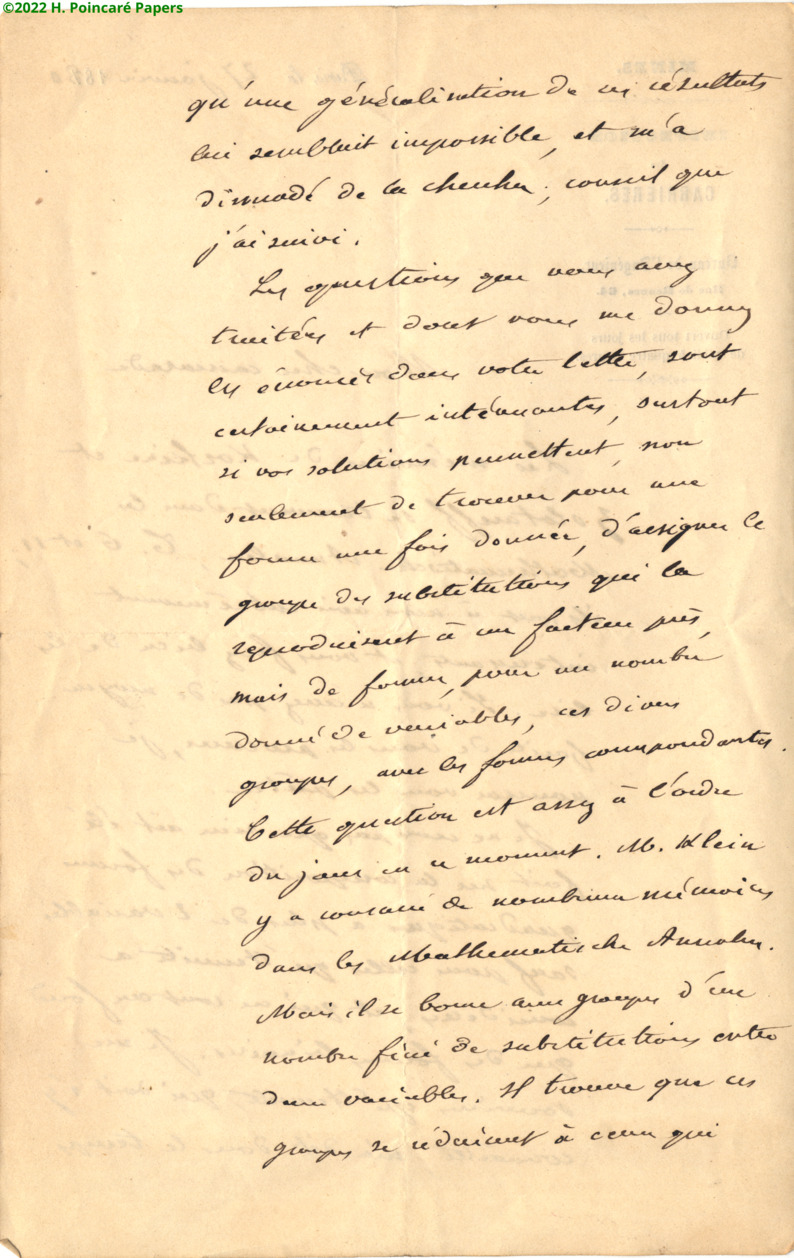 ©2022 H. Poincaré Papers
qu'une généralisation de ces résultats
lui semblait impossible, et m'a
dissuadé de la chercher; conseil que
j'ai suivi.
Les questions que vous avez
traitées et dont vous me donnez
les énoncés dans votre lettre, sont
certainement intéressantes, surtout
si vos solutions permettent, non
seulement de trouver pour une
forme une fois donnée, d'assigner le
groupe des substitutions qui la
reproduisent à un facteur près,
mais de former, pour un nombre
donné de variables, ces divers
groupes, avec les formes correspondantes.
Cette question est assez à l'ordre
du jour en ce moment. M. Klein
y a consacré de nombreux mémoires
dans les Mathematische Annalen.
Mais il se borne aux groupes d'un
nombre fini de substitutions entre
deux variables. Il trouve que ces
groupes se réduisent à ceux qui